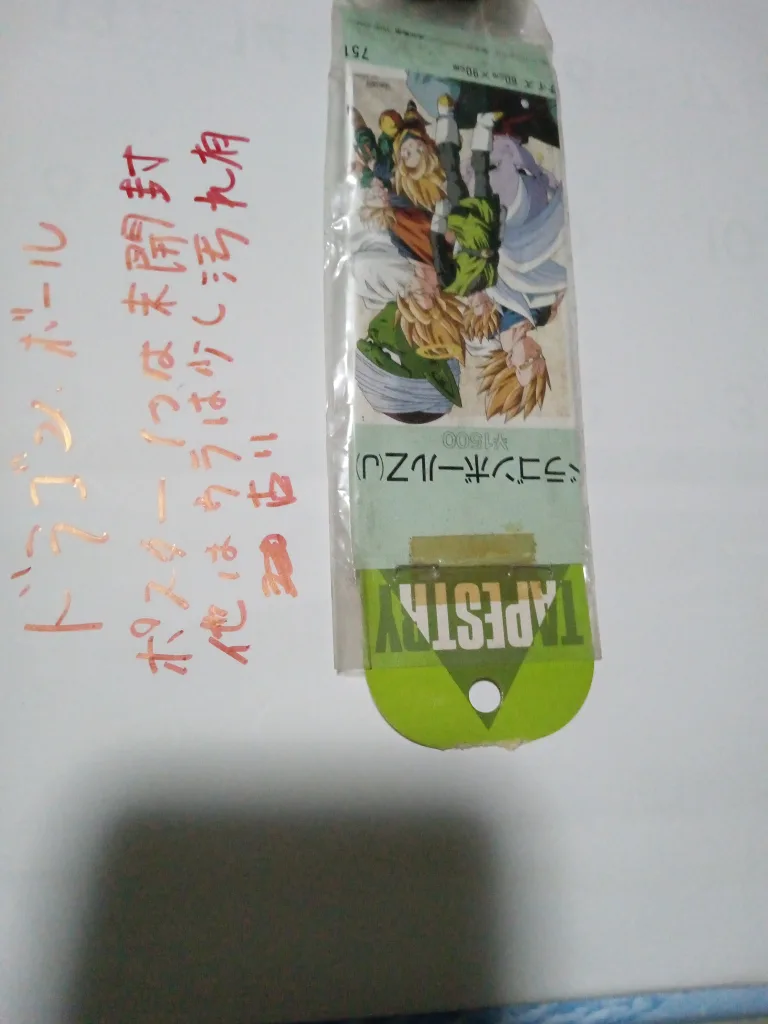 ドラゴンボール
ポスター1つは未開封
他はウラは少し汚れ有
古い
TAPESTRY
ドラゴンボールZ(J)
¥1500
サイズ 60cm×90cm
751